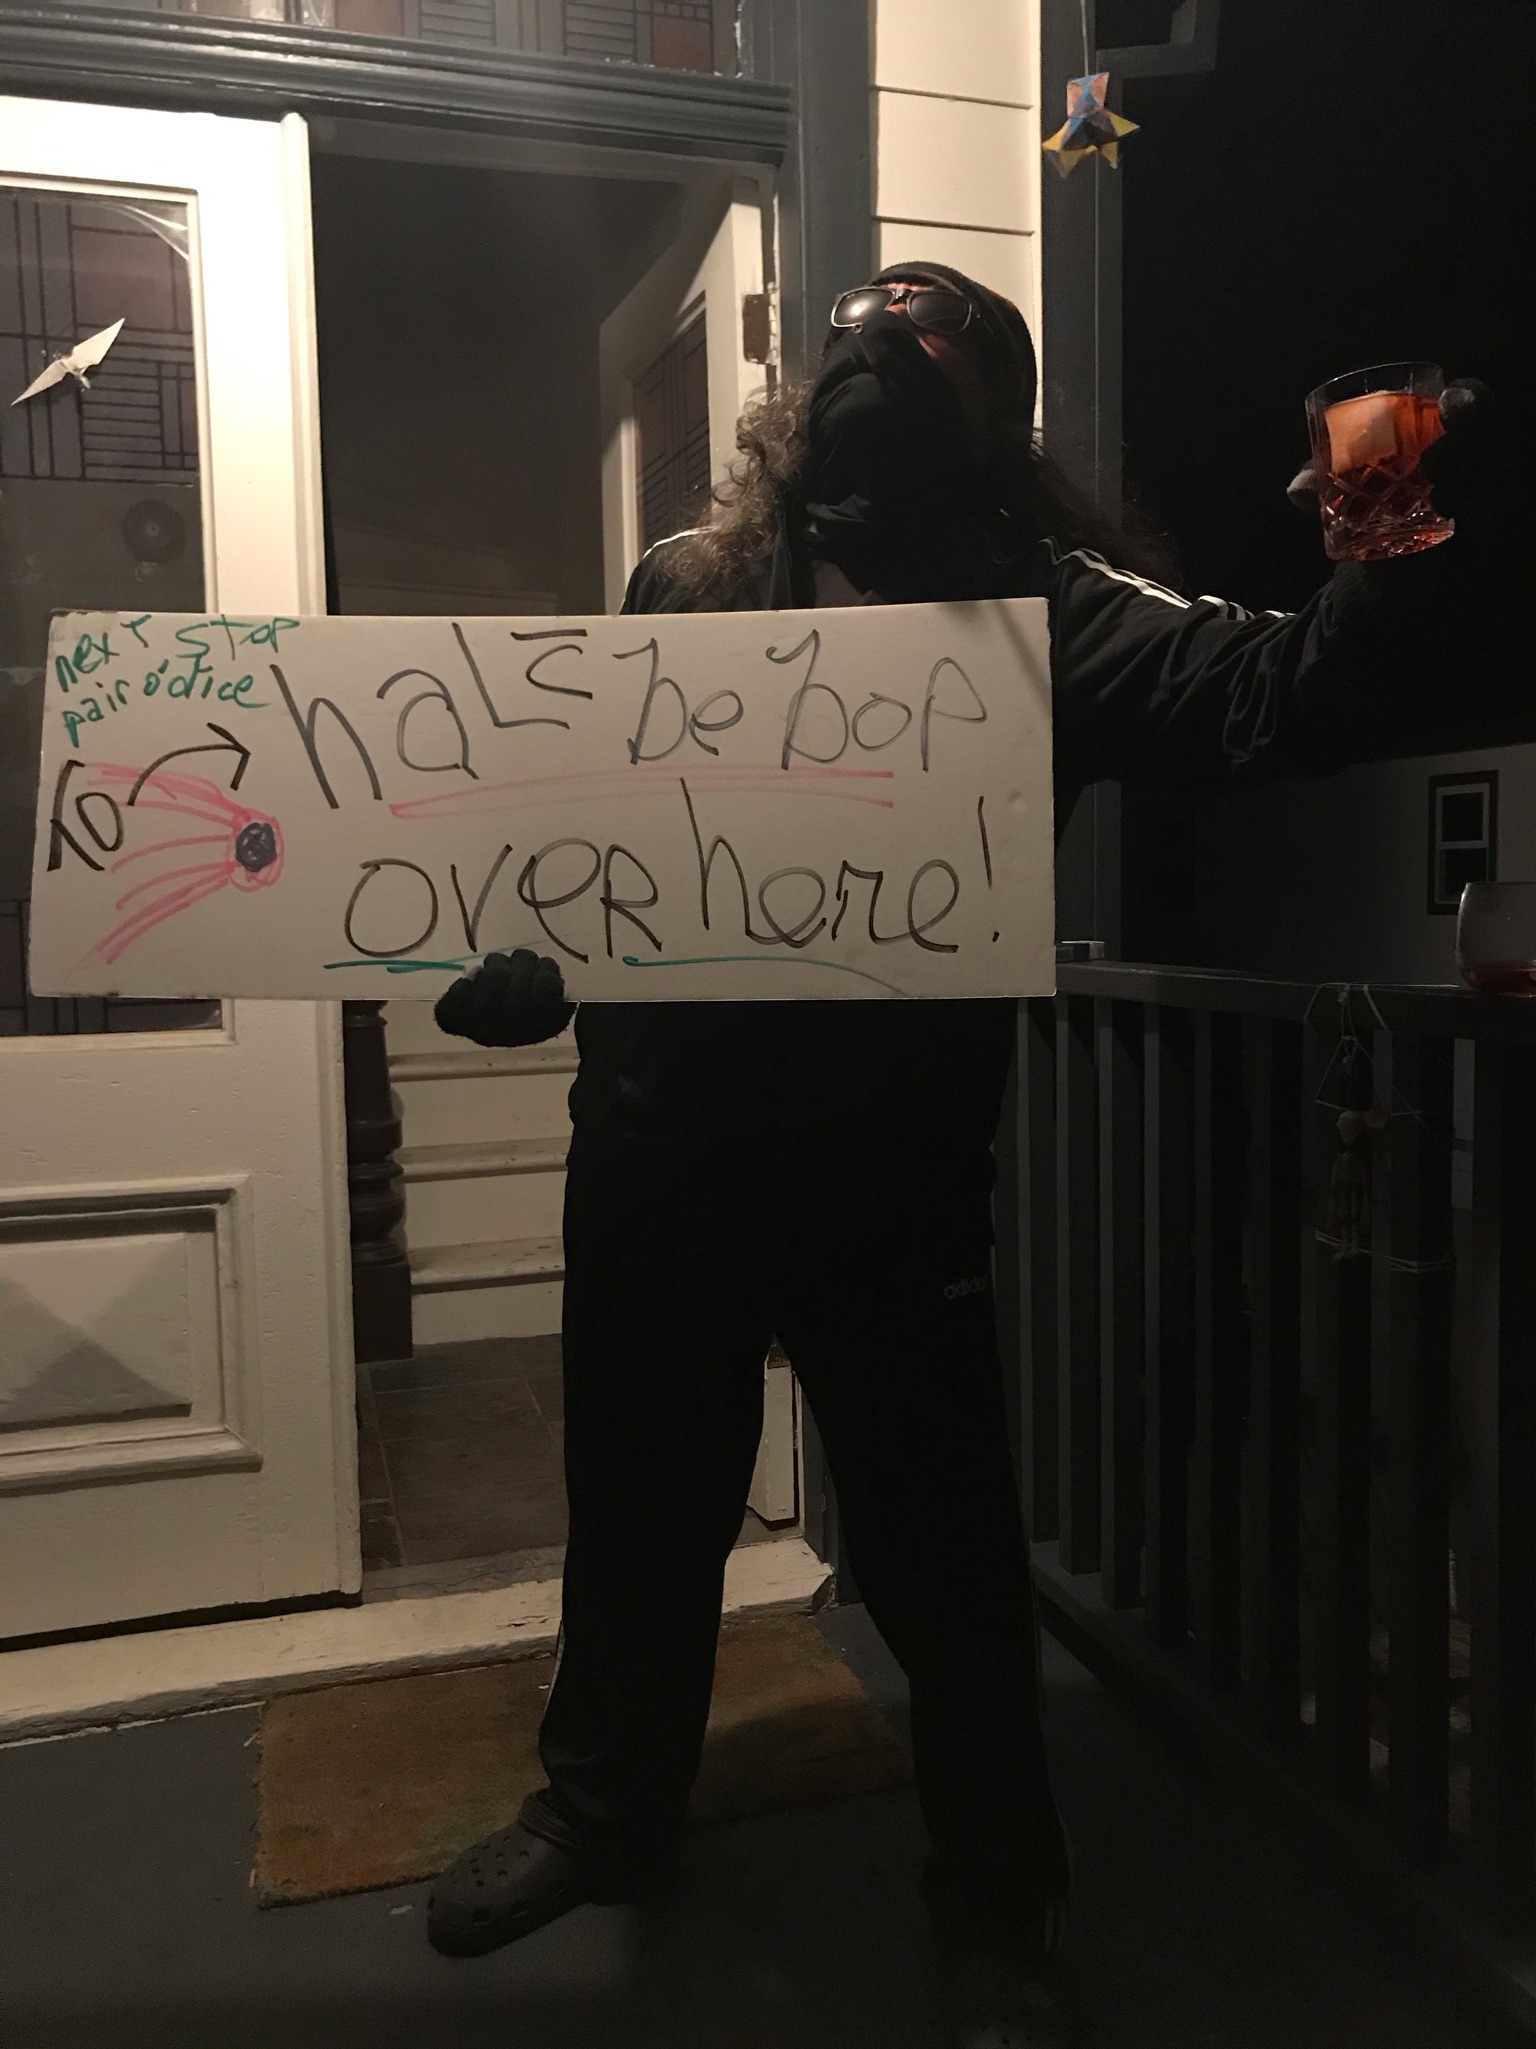 next stop
pair o'dice
to
halē be bop
over here!
adidas